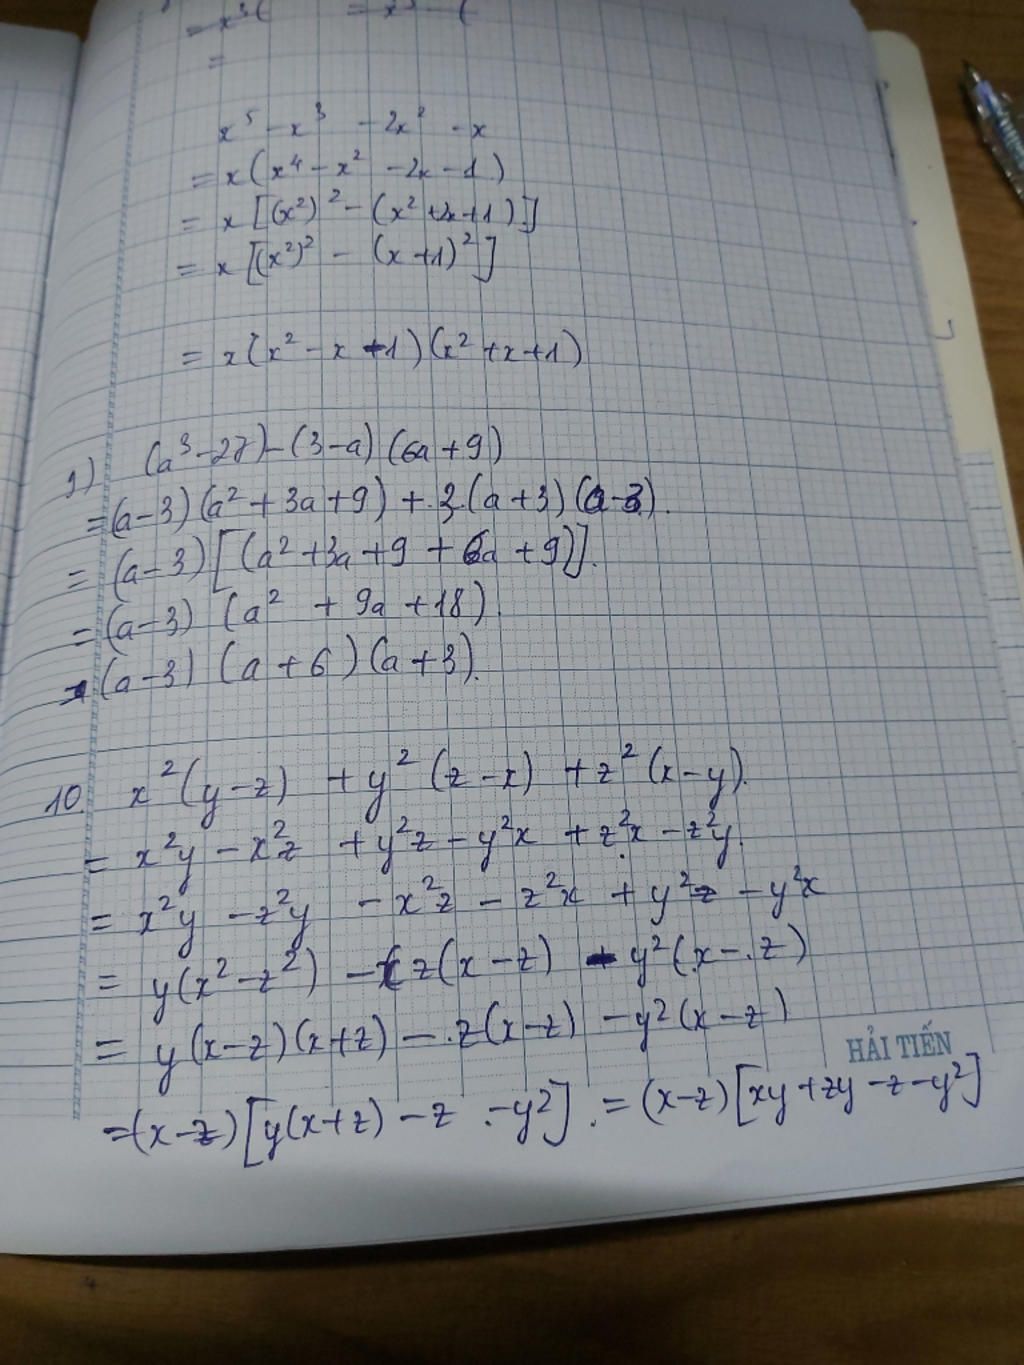 = x³(   = x³ - (
=
x⁵ - x³ - 2x² - x
= x(x⁴ - x² - 2x - 1)
= x[(x²)² - (x² + 2x + 1)]
= x[(x²)² - (x + 1)²]
= x(x² - x - 1)(x² + x + 1)
9) (a³ - 27) - (3 - a)(6a + 9)
= (a - 3)(a² + 3a + 9) + 3.(a + 3)(a - 3).
= (a - 3)[(a² + 3a + 9 + 6a + 9)].
= (a - 3)(a² + 9a + 18).
= (a - 3)(a + 6)(a + 3).
10. x²(y - z) + y²(z - x) + z²(x - y).
= x²y - x²z + y²z - y²x + z²x - z²y.
= x²y - z²y - x²z - z²x + y²z - y²x
= y(x² - z²) - z(x - z) - y²(x - z)
= y(x - z)(x + z) - z(x - z) - y²(x - z)
HẢI TIẾN
= (x - z)[y(x + z) - z - y²]. = (x - z)[xy + zy - z - y²]